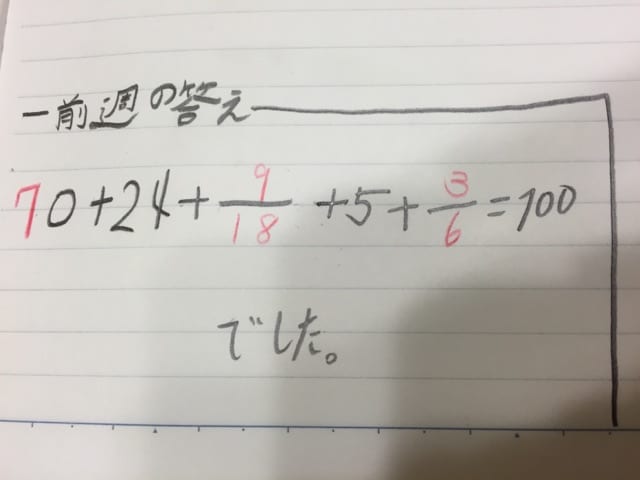 前週の答え
70+24+9/18+5+3/6=100
でした。